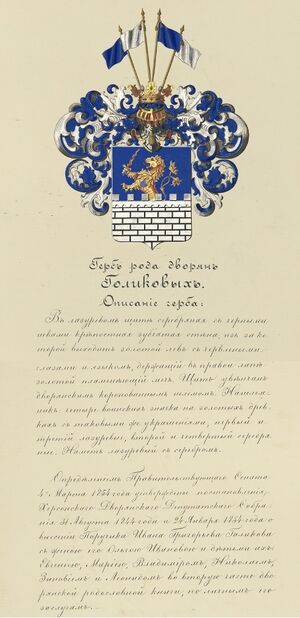 Гербъ рода дворянъ
Голиковыхъ.
Описаніе герба:
Въ лазуревомъ щитѣ серебряная съ черными
швами крѣпостная зубчатая стѣна, изъ за ко
торой выходитъ золотой левъ съ червлеными
глазами и языкомъ, держащій въ правой лапѣ
золотой пламенѣющій мечъ. Щитъ увѣнчанъ
дворянскимъ коронованнымъ шлемомъ. Нашлем
никъ: четыре воинскихъ значка на золотыхъ древ
кахъ съ таковыми же украшеніями, первый и
третій лазуревые, второй и четвертый серебря
ные. Наметъ лазуревый съ серебромъ.
Опредѣленіемъ Правительствующаго Сената
4го Марта года утверждены постановленія,
Херсонскаго Дворянскаго Депутатскаго Собра
нія 31 Августа 1844 года и 24 Января года о
внесеніи Поручика Ивана Григорьева Голикова
съ женою его Ольгою Ивановою и дѣтьми ихъ
Евгеніею, Маріею, Владиміромъ, Николаемъ,
Зиновіемъ и Леонидомъ во вторую часть дво
рянской родословной книги, по личнымъ его
заслугамъ.